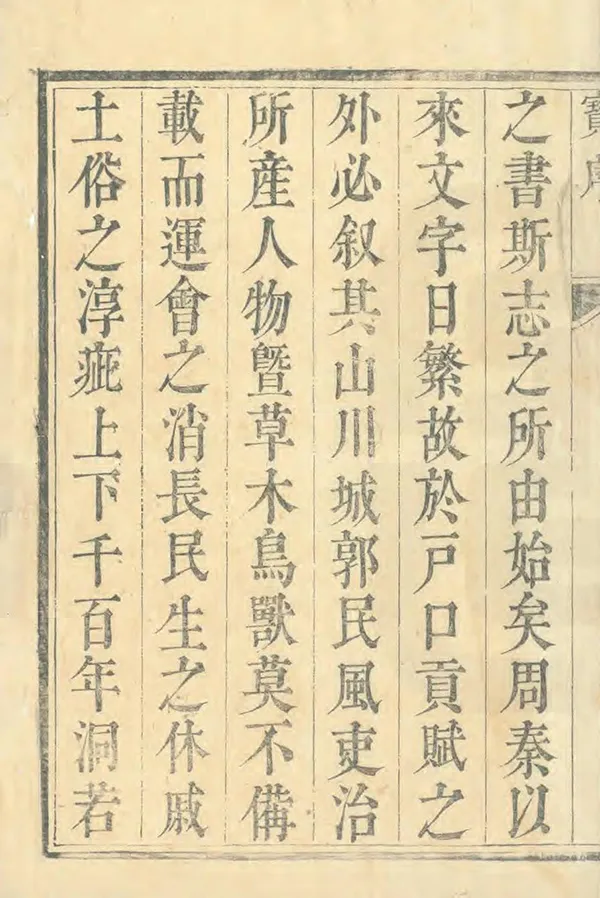 之書斯志之所由始矣周秦以
來文字日繁故於戸口貢賦之
外必叙其山川城郭民風吏治
所産人物曁草木鳥獸莫不備
載而運會之消長民生之休戚
土俗之淳疵上下千百年洞若